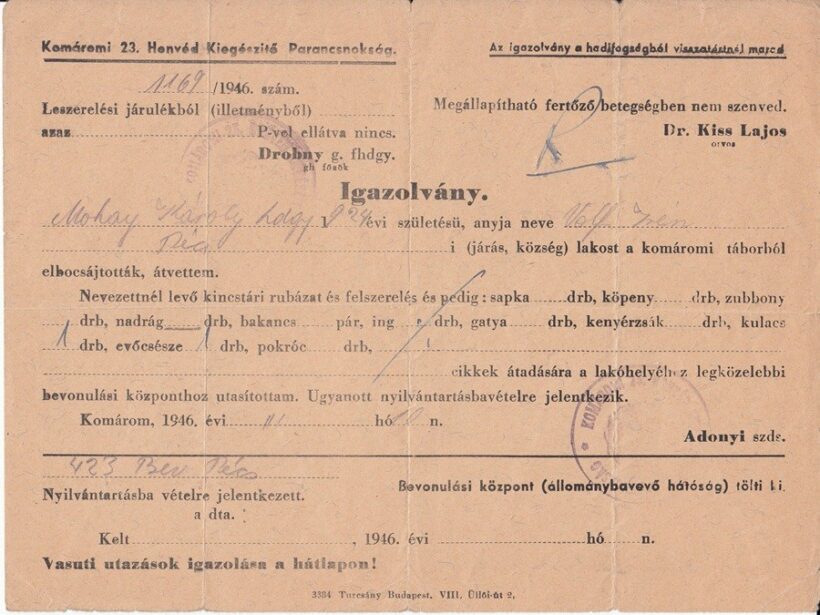 Komáromi 23. Honvéd Kiegészítő Parancsnokság.
Az igazolvány a hadifogságból visszatértnél marad
1169 /1946. szám.
Leszerelési járulékból (illetményből)
azaz P-vel ellátva nincs.
Drobny g. fhdgy.
gh főnök
Megállapítható fertőző betegségben nem szenved.
Dr. Kiss Lajos
orvos
Igazolvány.
Mohay Károly 924 évi születésü, anyja neve Volf Irén
i (járás, község) lakost a komáromi táborból
elbocsájtották, átvettem.
Nevezettnél levő kincstári rubázat és felszerelés és pedig : sapka drb, köpeny drb, zubbony
drb, nadrág drb, bakancs pár, ing drb, gatya drb, kenyérzsák drb, kulacs
1 drb, evőcsésze 1 drb, pokróc drb,
cikkek átadására a lakóhelyéhez legközelebbi
bevonulási központhoz utasítottam. Ugyanott nyilvántartásbavételre jelentkezik.
Komárom, 1946. évi hó 10 n.
Adonyi szds.
423 Bev Pécs
Nyilvántartásba vételre jelentkezett.
a dta.
Bevonulási központ (állománybavevő hátóság) tölti ki.
Kelt , 1946. évi hó n.
Vasuti utazások igazolása a hátlapon!
3384 Turcsány Budapest, VIII. Üllői-út 2.